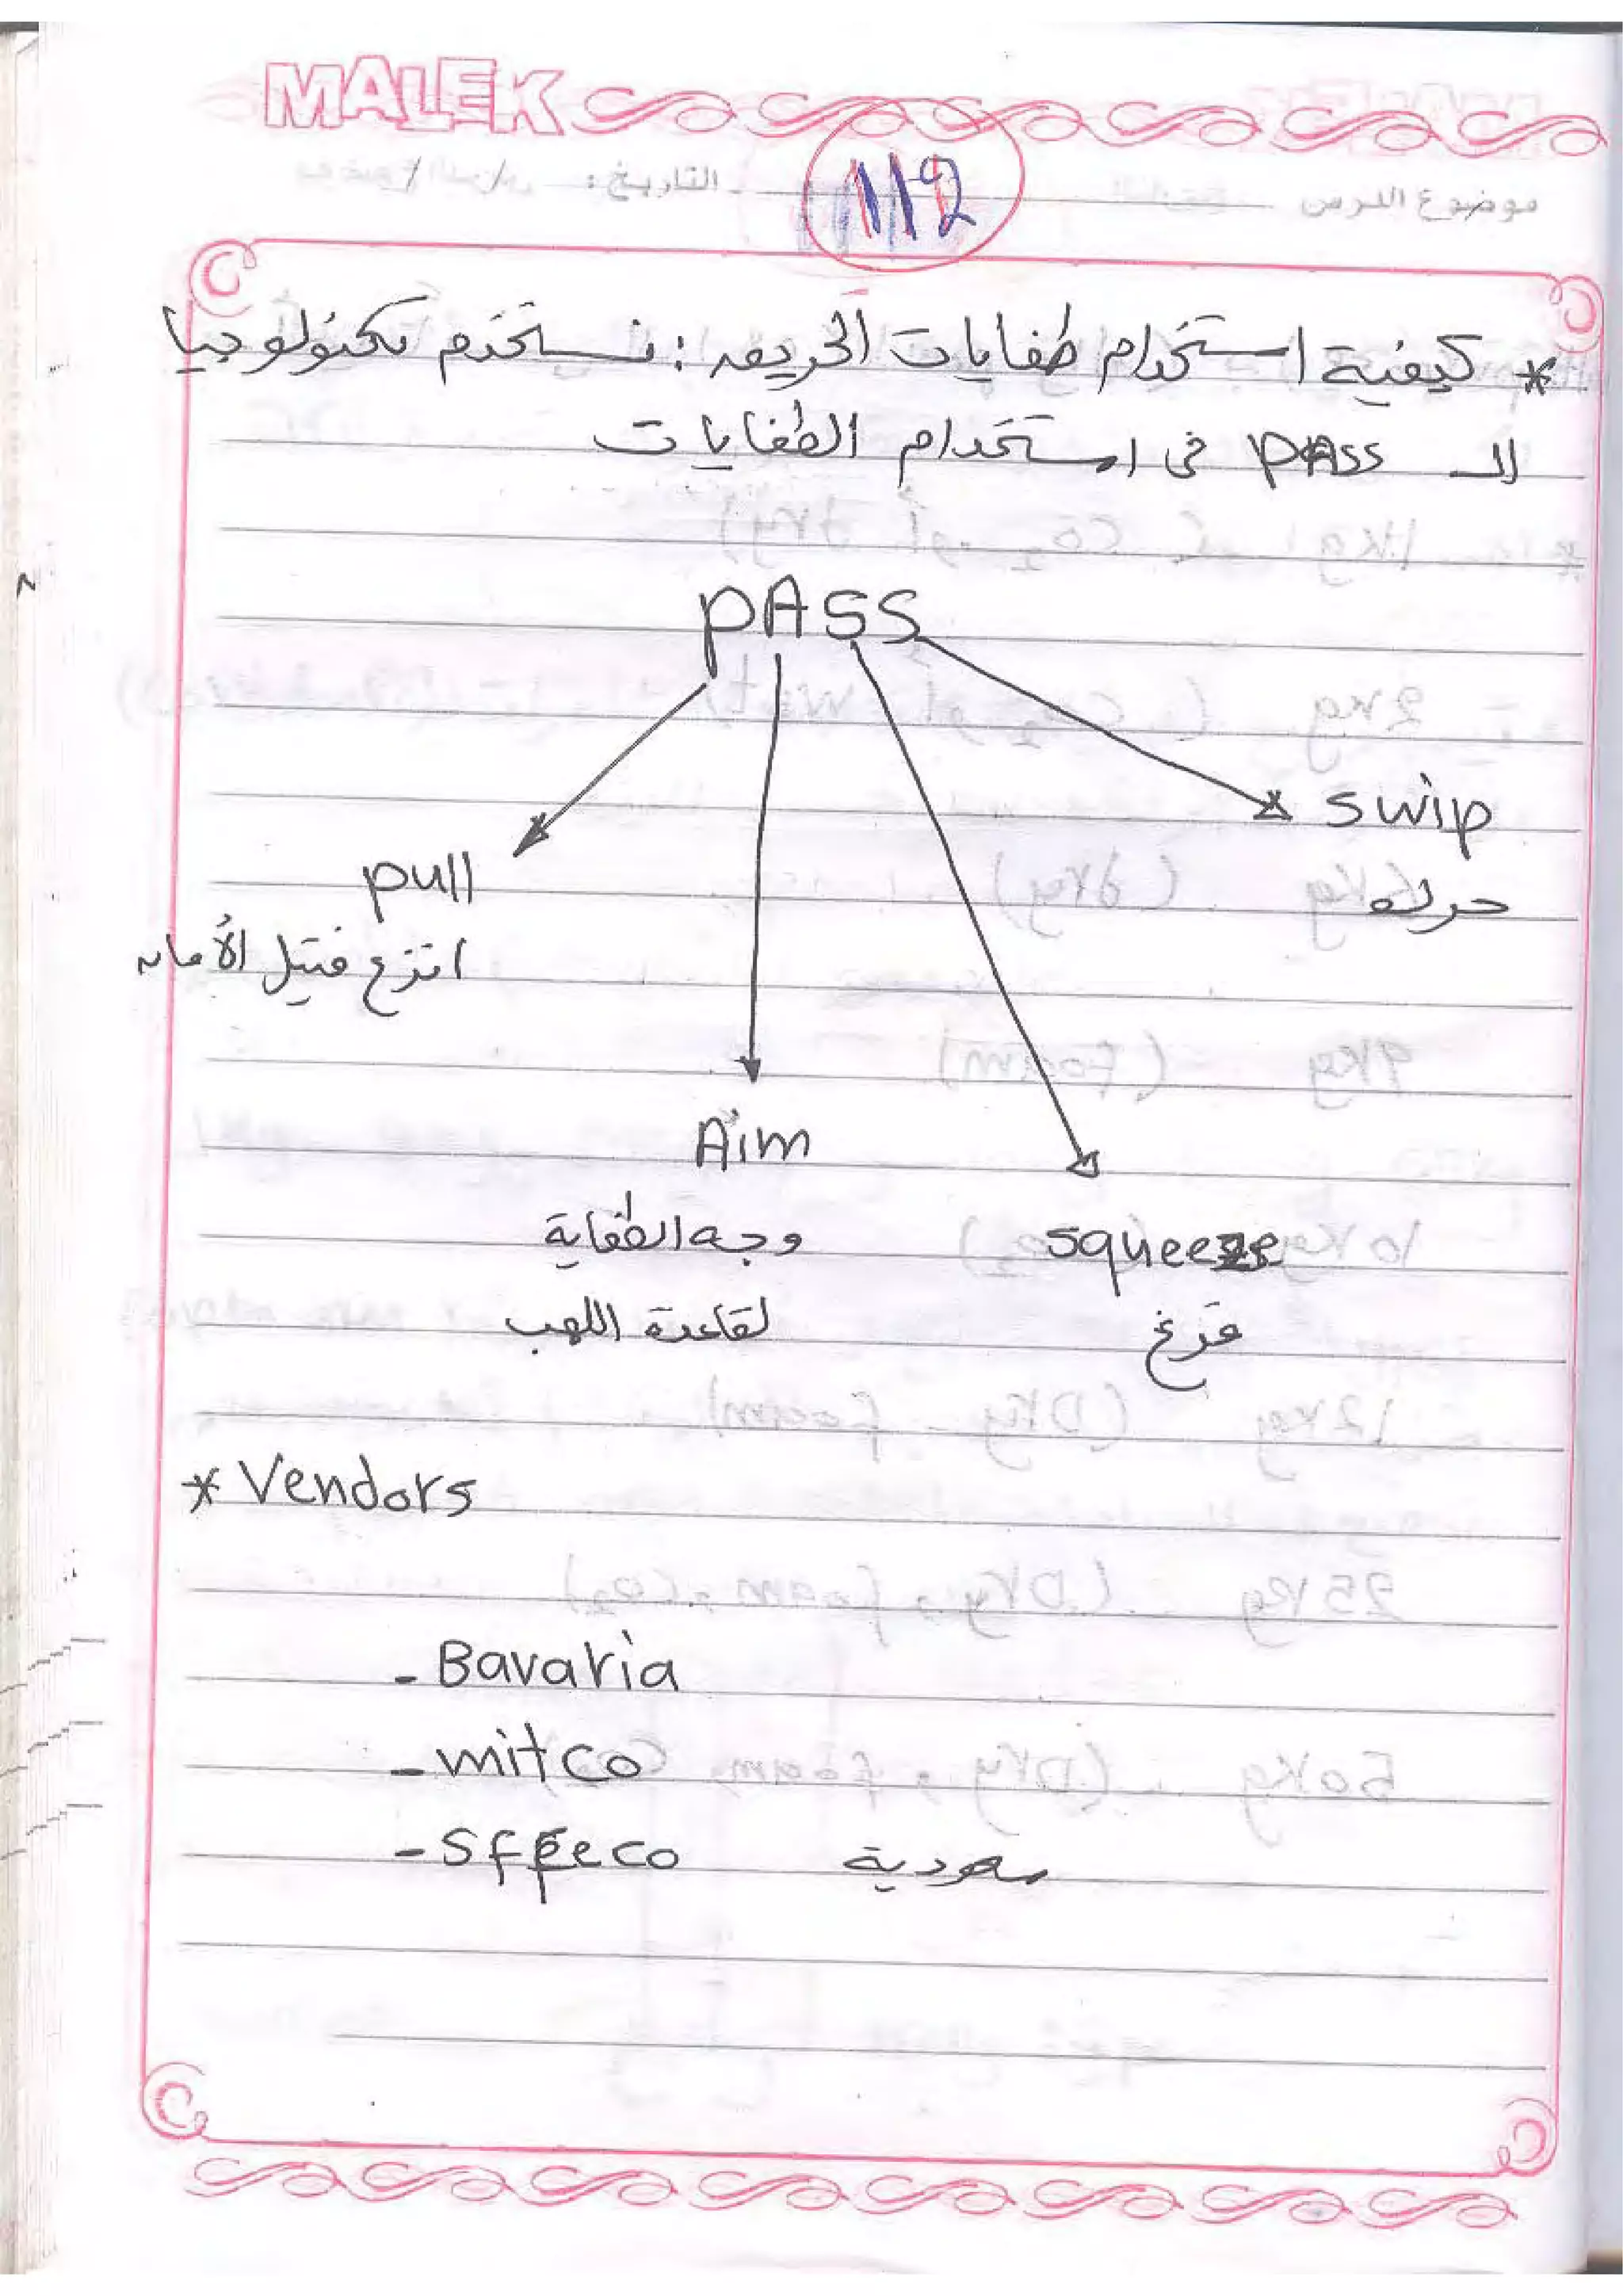 MALEK
موضوع الدرس التاريخ: / /
112
* كيفية استخدام طفايات الحريق: نستخدم تكنولوجيا
الـ PASS فى استخدام الطفايات
PASS
swip
حركه
pull
انزع فتيل الأمان
Aim
وجه الطفاية
لقاعدة اللهب
squeeze
فرغ
* Vendors
- Bavaria
- mitco
- sffeco سعودية